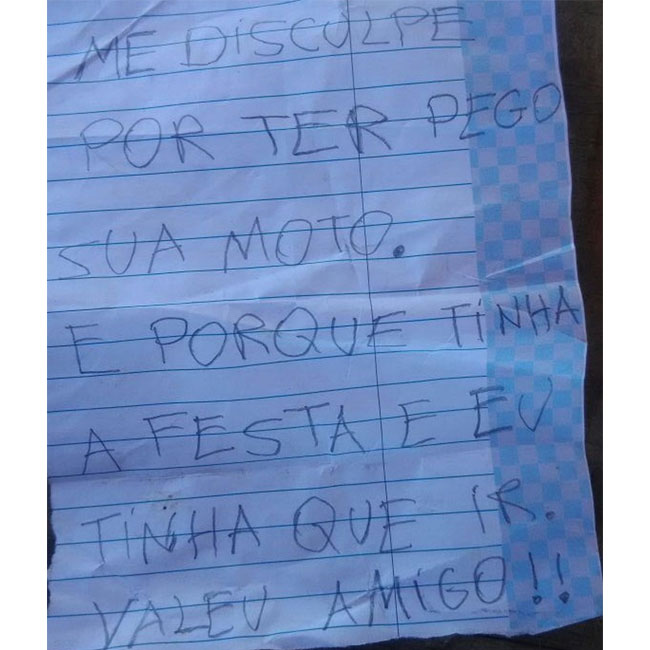 ME DISCULPE
POR TER PEGO
SUA MOTO.
E PORQUE TINHA
A FESTA E EU
TINHA QUE IR.
VALEU AMIGO!!